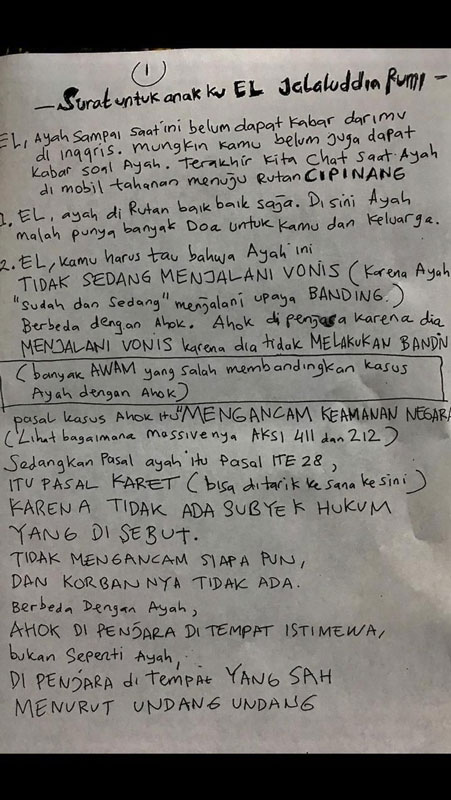 1
- Surat untuk anak ku EL Jalaluddin Rumi -
EL, Ayah sampai saat ini belum dapat kabar darimu
di inggris. mungkin kamu belum juga dapat
kabar soal Ayah. Terakhir kita chat saat Ayah
di mobil tahanan menuju Rutan CIPINANG
1. EL, ayah di Rutan baik baik saja. Disini Ayah
malah punya banyak Doa untuk kamu dan keluarga.
2. EL, kamu harus tau bahwa Ayah ini
TIDAK SEDANG MENJALANI VONIS (Karena Ayah
"Sudah dan Sedang" menjalani upaya BANDING.)
Berbeda dengan Ahok. Ahok di penjara karena dia
MENJALANI VONIS karena dia tidak MELAKUKAN BANDIN
(banyak AWAM yang salah membandingkan kasus
Ayah dengan Ahok)
pasal kasus Ahok itu "MENGANCAM KEAMANAN NEGARA
(Lihat bagaimana massivenya AKSI 411 dan 212)
Sedangkan Pasal ayah itu Pasal ITE 28,
ITU PASAL KARET (bisa ditarik ke sana ke sini)
KARENA TIDAK ADA SUBYEK HUKUM
YANG DI SEBUT.
TIDAK MENGANCAM SIAPA PUN,
DAN KORBAN NYA TIDAK ADA.
Berbeda Dengan Ayah,
AHOK DI PENJARA DI TEMPAT ISTIMEWA,
bukan Seperti Ayah,
DI PENJARA di Tempat YANG SAH
MENURUT UNDANG UNDANG